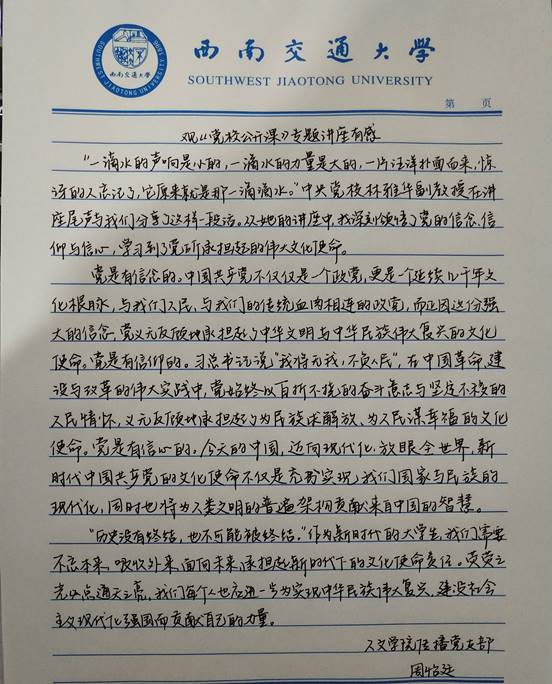 西南交通大学
SOUTHWEST JIAOTONG UNIVERSITY
第 页
观《党校公开课》专题讲座有感
“一滴水的声响是小的，一滴水的力量是大的，一片汪洋扑面而来，惊
讶的人忘记了，它原来就是那一滴滴水。”中央党校林雅华副教授在讲
座尾声与我们分享了这样一段话。从她的讲座中，我深刻领悟了党的信念、信
仰与信心，学习到了党所承担起的伟大文化使命。
党是有信念的。中国共产党不仅仅是一个政党，更是一个延续几千年文
化根脉，与我们人民、与我们的传统血肉相连的政党，而正因这份强
大的信念，党义无反顾地承担起了中华文明与中华民族伟大复兴的文化
使命。党是有信仰的。习总书记说“我将无我，不负人民”，在中国革命、建
设与改革的伟大实战中，党始终以百折不挠的奋斗意志与坚定不移的
人民情怀，义无反顾地承担起了为民族求解放、为人民谋幸福的文化
使命。党是有信心的。今天的中国，迈向现代化，放眼全世界，新
时代中国共产党的文化使命不仅是充分实现我们国家与民族的
现代化，同时也将为人类文明的普遍架构贡献来自中国的智慧。
“历史没有终结，也不可能被终结。”作为新时代的大学生，我们需要
不忘本来、吸收外来、面向未来，承担起新时代下的文化使命责任。荧荧之
光必点通天之亮，我们每个人也应进一步为实现中华民族伟大复兴、建设社会
主义现代化强国而贡献自己的力量。
人文学院传播党支部
周怡廷